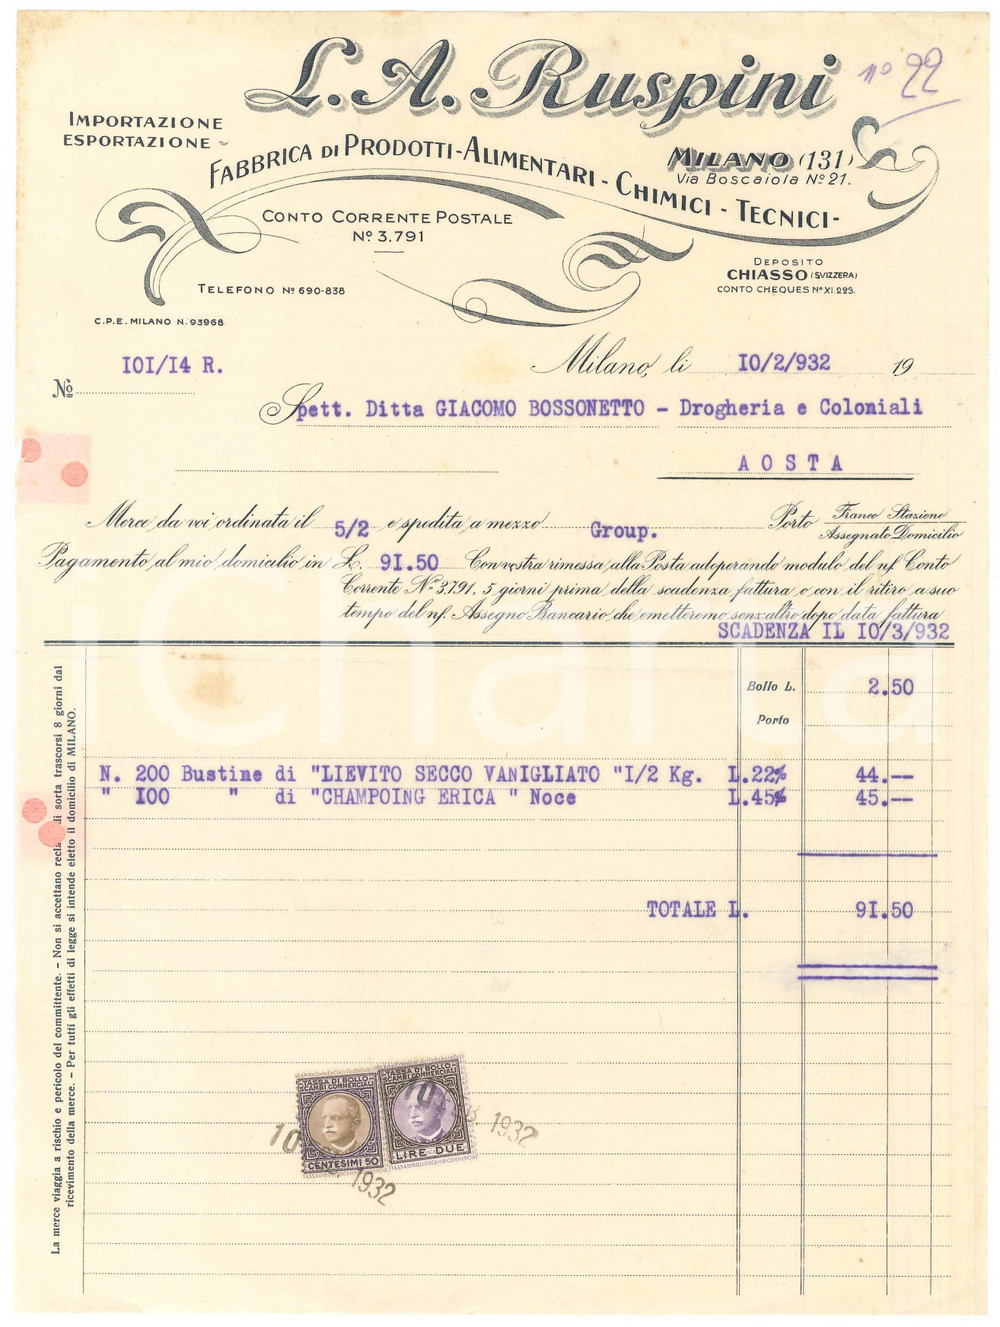 L. A. Ruspini
nº 22
IMPORTAZIONE
ESPORTAZIONE
FABBRICA DI PRODOTTI-ALIMENTARI - CHIMICI - TECNICI -
MILANO (131)
Via Boscaiola Nº 21.
CONTO CORRENTE POSTALE
Nº 3.791
DEPOSITO
CHIASSO (SVIZZERA)
CONTO CHEQUES Nº XI.223.
TELEFONO Nº 690-838
C.P.E. MILANO N. 93968
Nº 101/14 R.
Milano, li 10/2/932 19
Spett. Ditta GIACOMO BOSSONETTO - Drogheria e Coloniali
A O S T A
Merce da voi ordinata il 5/2 e spedita a mezzo Group. Porto Franco Stazione
Assegnato Domicilio
Pagamento al mio domicilio in L. 91.50 Con vostra rimessa alla Posta adoperando modulo del nf. Conto
Corrente Nº 3.791, 5 giorni prima della scadenza fattura o con il ritiro a suo
tempo del nf. Assegno Bancario che emetteremo senz'altro dopo data fattura
SCADENZA IL 10/3/932
Bollo L. 2.50
Porto
N. 200 Bustine di "LIEVITO SECCO VANIGLIATO "1/2 Kg. L.22% 44.--
" 100 " di "CHAMPOING ERICA " Noce L.45% 45.--
TOTALE L. 91.50
La merce viaggia a rischio e pericolo del committente. - Non si accettano recla di sorta trascorsi 8 giorni dal
ricevimento della merce. - Per tutti gli effetti di legge si intende eletto il domicilio di MILANO.
TASSA DI BOLLO
SCAMBI COMMERCIALI
CENTESIMI 50
TASSA DI BOLLO
SCAMBI COMMERCIALI
LIRE DUE
10 1932
10 1932
Charta